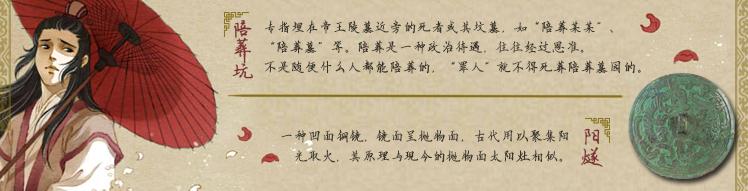 陪葬坑
专指埋在帝王陵墓近旁的死者或其坟墓，如“陪葬某某”、
“陪葬墓”等。陪葬是一种政治待遇，往往经过恩准。
不是随便什么人都能陪葬的，“罪人”就不得死葬陪葬墓园的。
阳燧
一种凹面铜镜，镜面呈抛物面，古代用以聚集阳
光取火，其原理与现今的抛物面太阳灶相似。